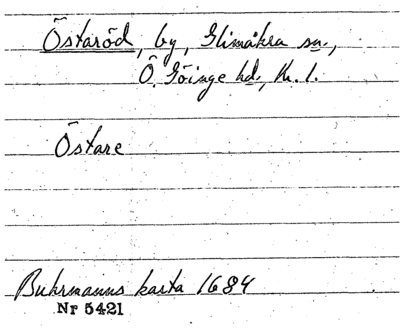 Östaröd, by, Glimåkra sn.,
Ö. Göinge hd., Kr. l.
Östare
Buhrmanns karta 1684
Nr 5421